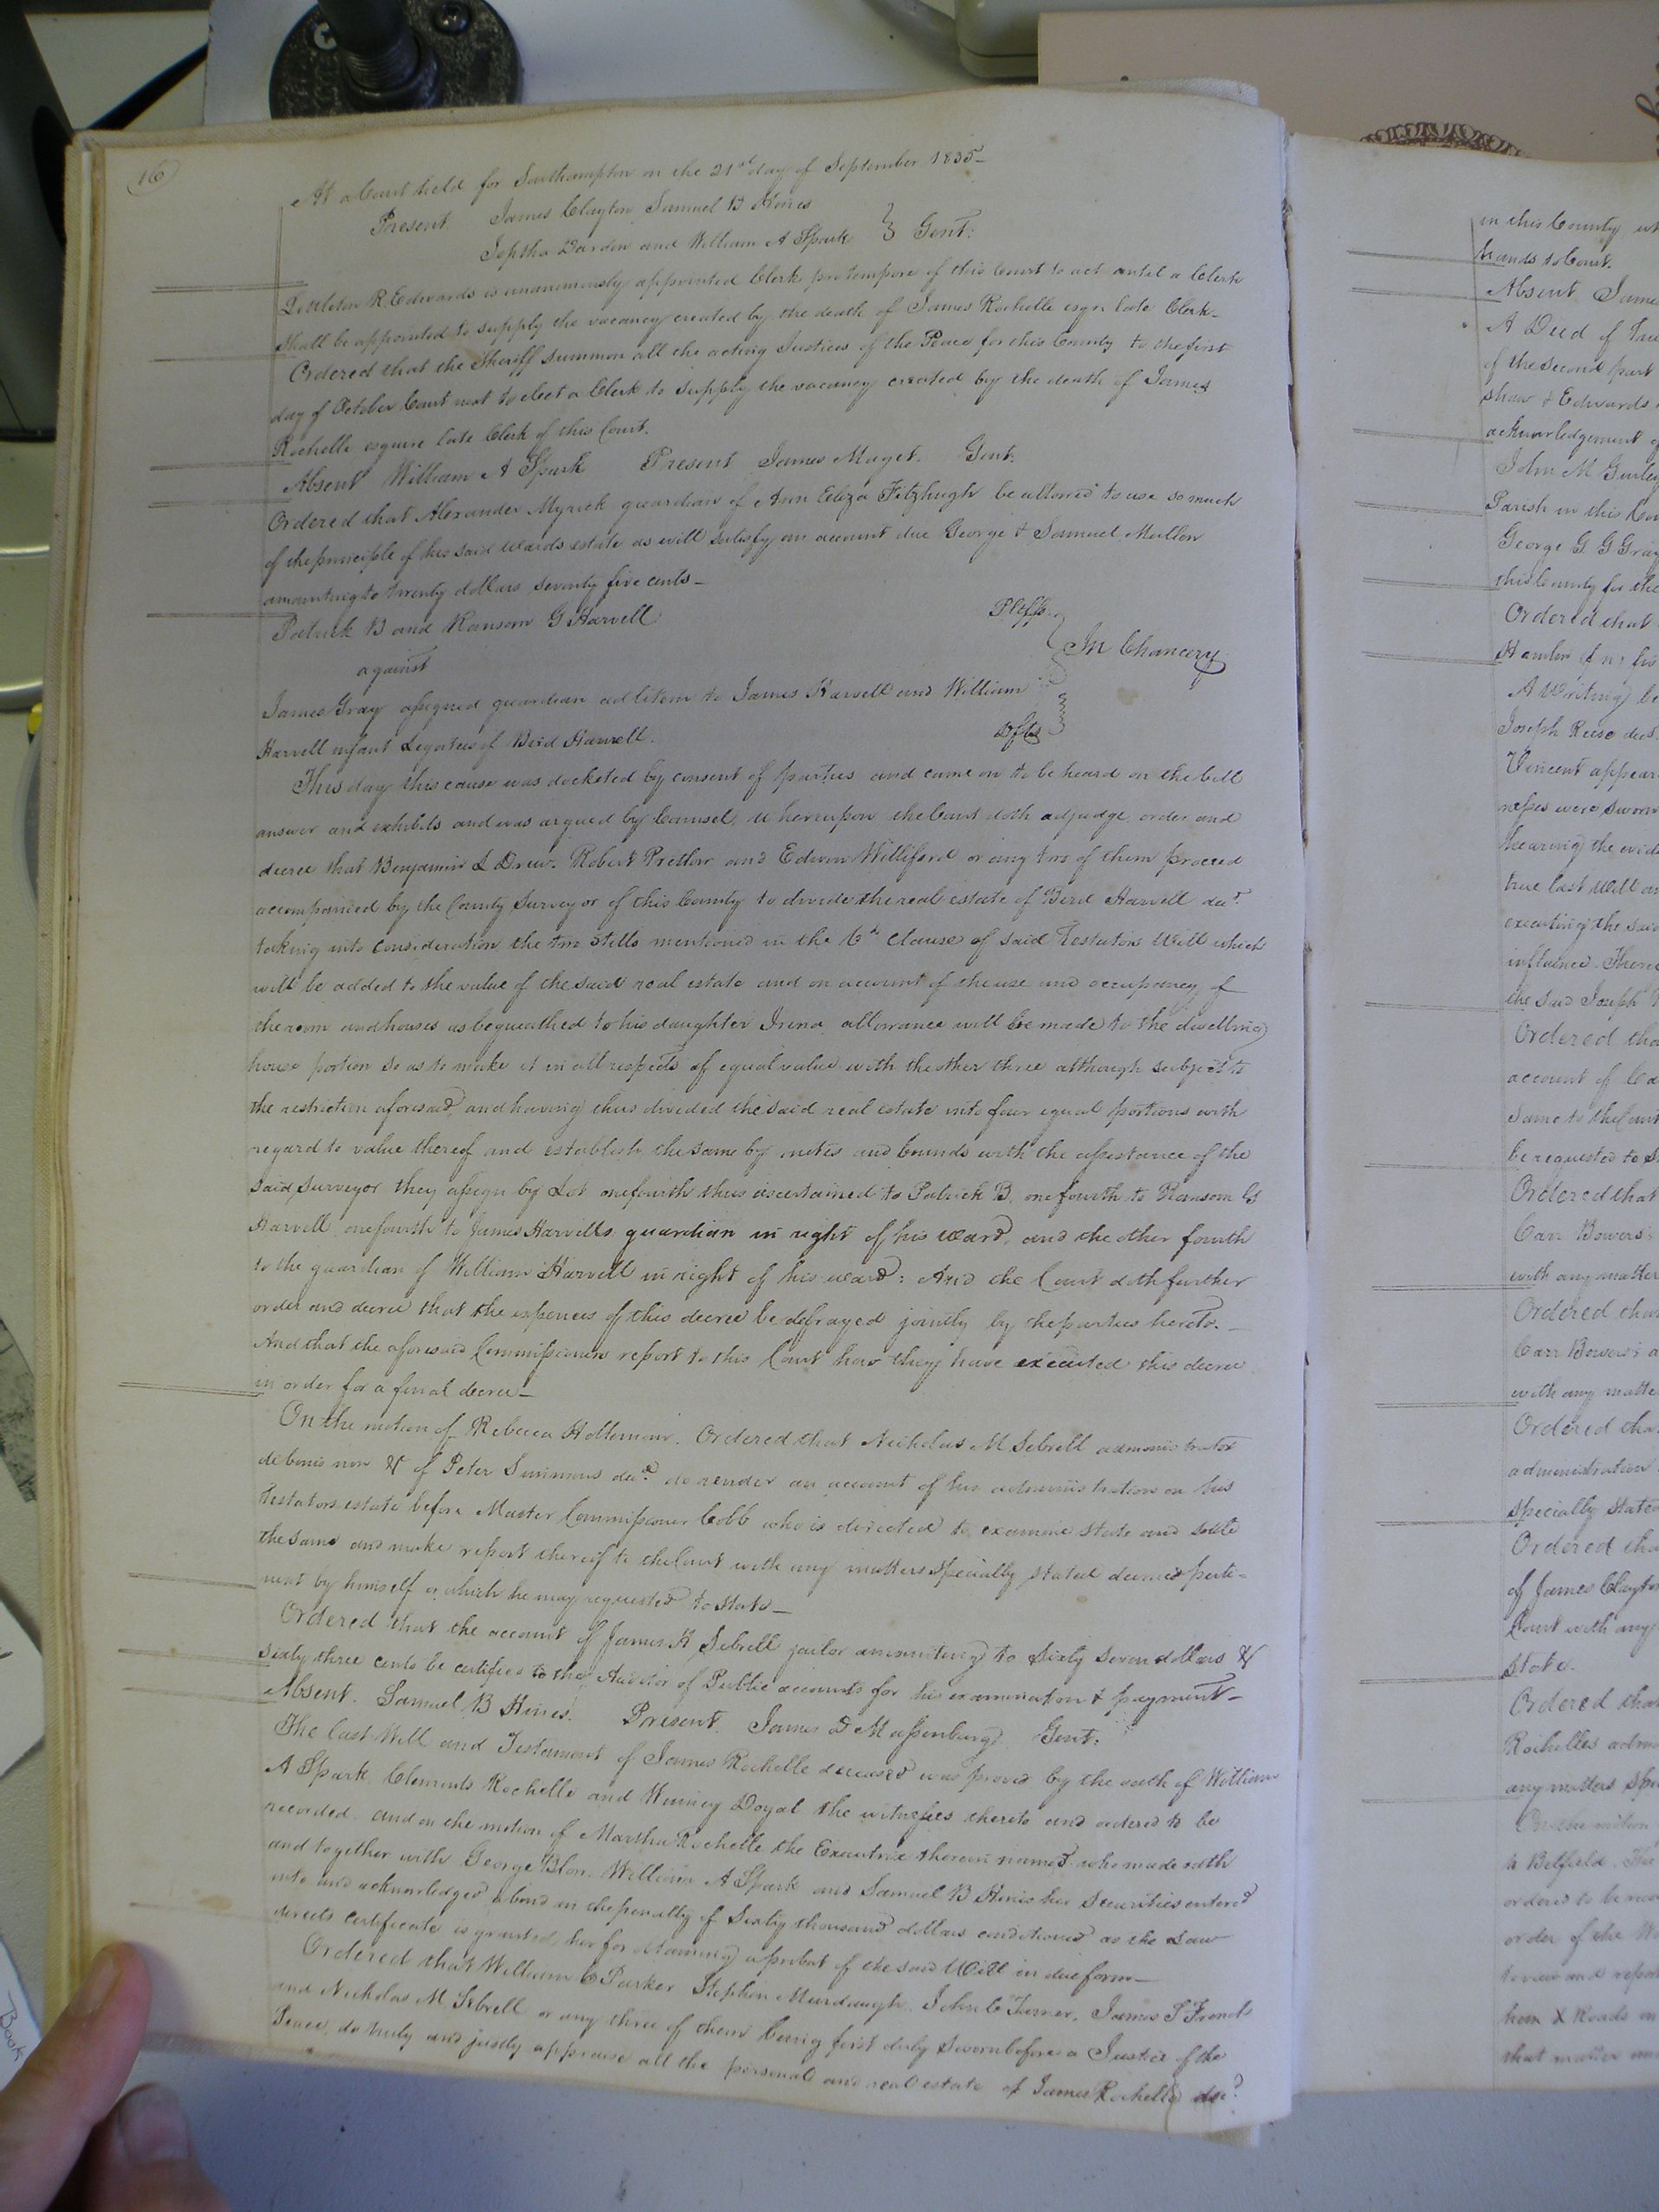 16
At a Court held for Southampton on the 21st day of September 1835
Present James Clayton Samuel B Hines
Jeptha Darden and William A Spark } Gent:
Littleton R. Edwards is unanimously appointed Clerk protempore of this Court to act until a Clerk
shall be appointed to supply the vacancy created by the death of James Rochelle esqr. late Clerk
Ordered that the Sheriff summon all the acting Justices of the Peace for this County to the first
day of October Court next to elect a Clerk to supply the vacancy created by the death of James
Rochelle esquire late Clerk of this Court.
Absent William A Spark Present James Maget. Gent.
Ordered that Alexander Myrick guardian of Ann Eliza Fitzhugh be allowed to use so much
of the principle of his said wards estate as will satisfy an account due George & Samuel Mullen
amounting to twenty dollars seventy five cents
Patrick B and Ransom G Harvell Pltffs.
against } In Chancery
James Gray assigned guardian adlitem to James Harvell and William
Harvell infant Legatees of Bird Harvell. Dfts
This day this cause was docketed by consent of parties and came on to be heard on the bill
answer and exhibits and was argued by Counsel, whereupon the Court doth adjudge order and
decree that Benjamin L Drew, Robert Pretlow and Edwin Williford or any two of them proceed
accompanied by the County Surveyor of this County to divide the real estate of Bird Harvell decd.
taking into consideration the two Stills mentioned in the 6th Clause of said Testators Will which
will be added to the value of the said real estate and on account of the use and occupancy of
the room and houses as bequeathed to his daughter Irena allowance will be made to the dwelling
house portion so as to make it in all respects of equal value with the other three although subject to
the restriction aforesaid, and having thus divided the said real estate into four equal portions with
regard to value thereof and establish the same by metes and bounds with the assistance of the
said Surveyor they assign by Lot one fourth thus ascertained to Patrick B, one fourth to Ransom G
Harvell one fourth to James Harvells guardian in right of his ward, and the other fourth
to the guardian of William Harvell in right of his ward: And the Court doth further
order and decree that the expences of this decree be defrayed jointly by the parties hereto.
And that the aforesaid Commissioners report to this Court how they have executed this decree
in order for a final decree
On the motion of Rebecca Holleman. Ordered that Nicholas M Sebrell administrator
debonis non & of Peter Simmons decd. do render an account of his administration on his
Testators estate before Master Commissioner Cobb who is directed to examine state and settle
the same and make report thereof to the Court with any matters specially stated deemed perti-
nent by himself or which he may requested to state
Ordered that the account of James H Sebrell jailor amounting to Sixty seven dollars &
sixty three cents be certified to the Auditor of Public accounts for his examination & payment
Absent. Samuel B Hines. Present. James D Massenburg Gent:
The last Will and Testament of James Rochelle deceased was proved by the oath of William
A Spark, Clements Rochelle and Doyal the witnesses thereto and ordered to be
recorded and on the motion of Martha Rochelle the Executrix therein named who made oath
and together with George Blow William A Spark and Samuel B Hines her securities entered
into and acknowledged a bond in the penalty of Sixty thousand dollars conditioned as the Law
directs certificate is granted her for obtaining a probat of the said Will in due form
Ordered that William C Parker Stephen Murdaugh. John C Turner, James S French
and Nicholas M Sebrell or any three of them being first duly sworn before a Justice of the
Peace, do truly and justly appraise all the personal and real estate of James Rochelle decd
in this County
hands to Court.
Absent James
A Deed of
of the second part
shaw & Edwards
acknowledgement
John M Gurley
Parish in this
George G G Gray
this County for the
Ordered that
A Writing
Joseph
Vincent appear
nesses were sworn
hearing the
true last Will
executing the said
influence.
the said Joseph
Ordered
account of
same to the Court
be requested to
Ordered that
Carr Bowers
with any matter
Ordered
Carr Bowers
with any
Ordered
administration
specially stated
Ordered
of James Clayton
Court with any
state.
Ordered
Rochelles
any matters
On the motion
Belfield.
ordered to be
order of the
to view and report
that
Book